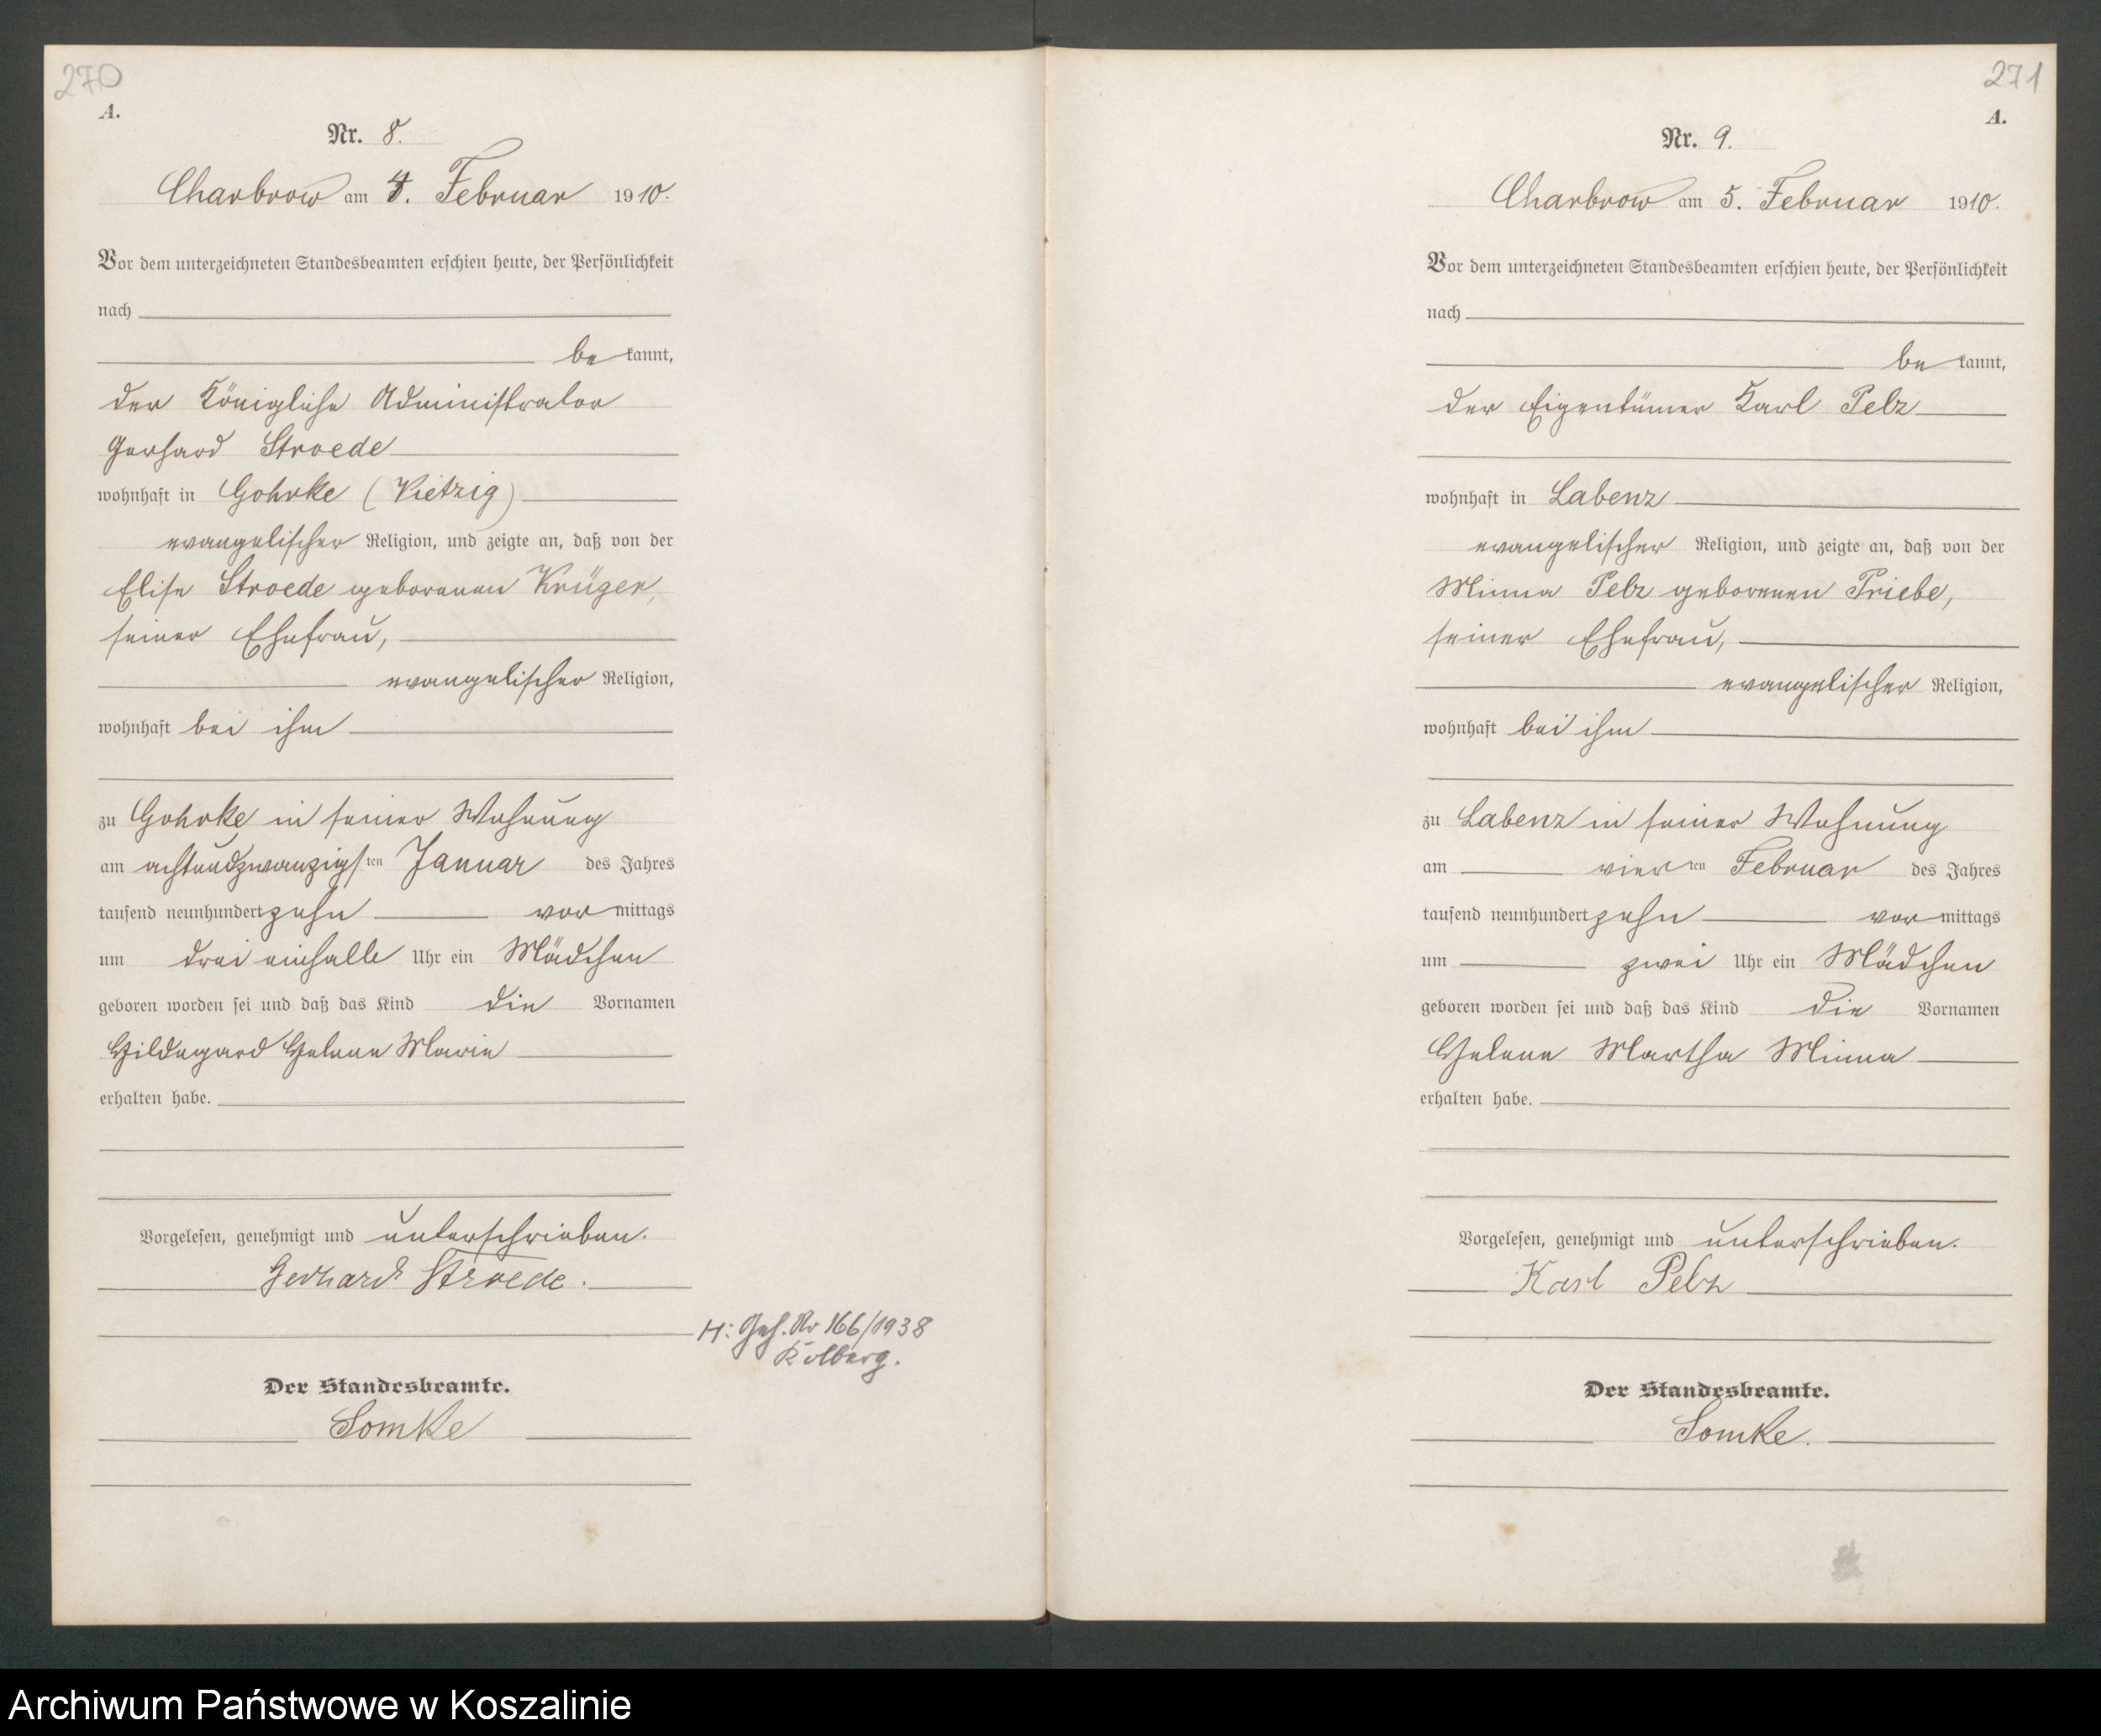 270
A.
Nr. 8.
Charbrow am 4. Februar 1910.
Vor dem unterzeichneten Standesbeamten erschien heute, der Persönlichkeit
nach
be kannt,
der Königliche Administrator
Gerhard Stroede
wohnhaft in Gohrke (Vietzig)
evangelischer Religion, und zeigte an, daß von der
Elise Stroede geborenen Krüger,
seiner Ehefrau,
evangelischer Religion,
wohnhaft bei ihm
zu Gohrke in seiner Wohnung
am achtundzwanzigsten Januar des Jahres
tausend neunhundert zehn vor mittags
um drei einhalb Uhr ein Mädchen
geboren worden sei und daß das Kind die Vornamen
Hildegard Helene Marie
erhalten habe.
Vorgelesen, genehmigt und unterschrieben.
Gerhard Stroede.
H: Nr 166/1938
Kolberg.
Der Standesbeamte.
Somke
271
A.
Nr. 9.
Charbrow am 5. Februar 1910.
Vor dem unterzeichneten Standesbeamten erschien heute, der Persönlichkeit
nach
be kannt,
der Eigentümer Karl Pelz
wohnhaft in Labenz
evangelischer Religion, und zeigte an, daß von der
Minna Pelz geborenen Priebe,
seiner Ehefrau,
evangelischer Religion,
wohnhaft bei ihm
zu Labenz in seiner Wohnung
am vierten Februar des Jahres
tausend neunhundert zehn vor mittags
um zwei Uhr ein Mädchen
geboren worden sei und daß das Kind die Vornamen
Helene Martha Minna
erhalten habe.
Vorgelesen, genehmigt und unterschrieben.
Karl Pelz
Der Standesbeamte.
Somke.
Archiwum Państwowe w Koszalinie